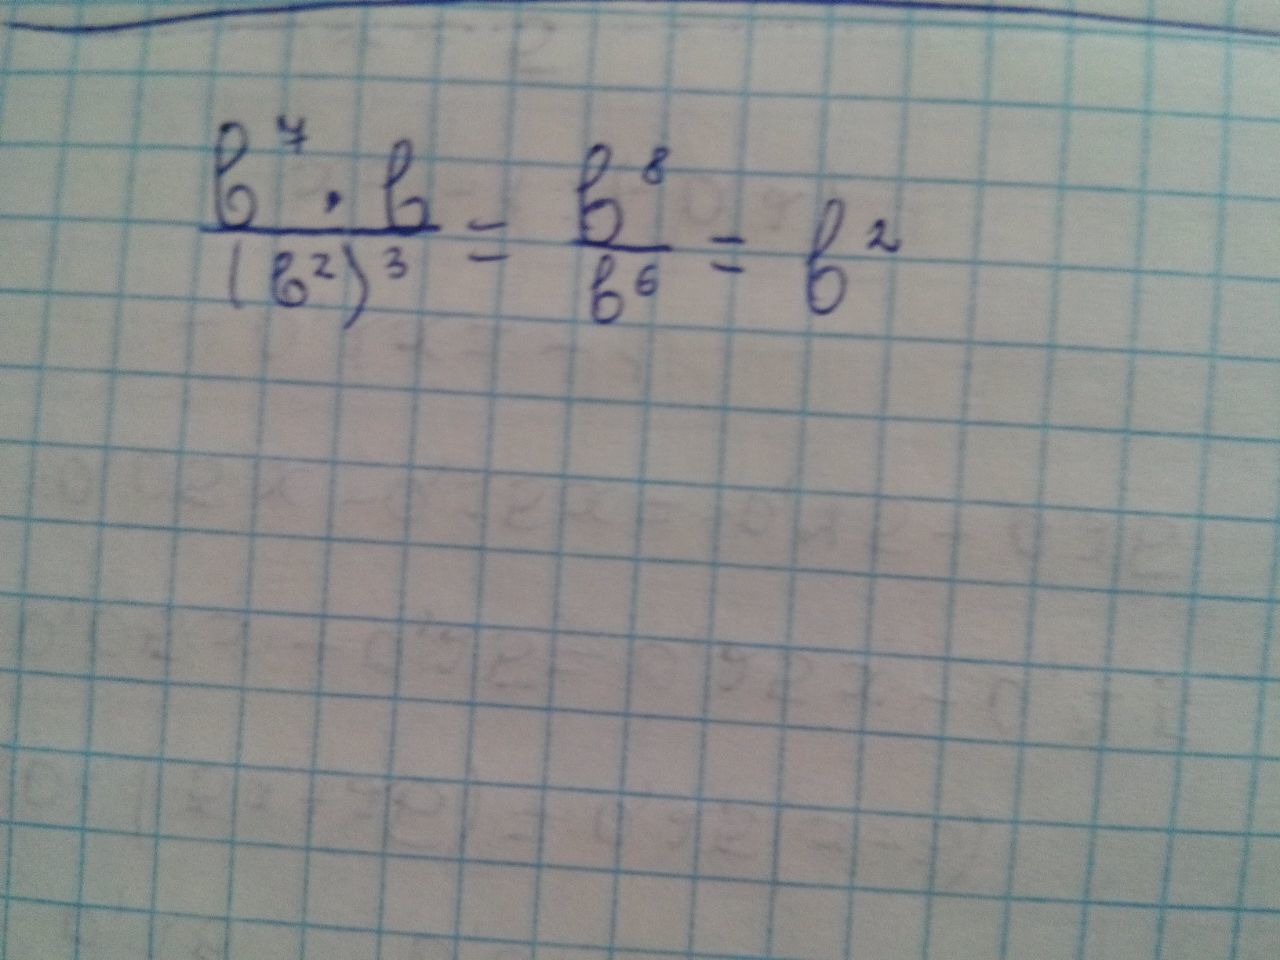 b⁷ · b / (b²)³ = b⁸ / b⁶ = b²